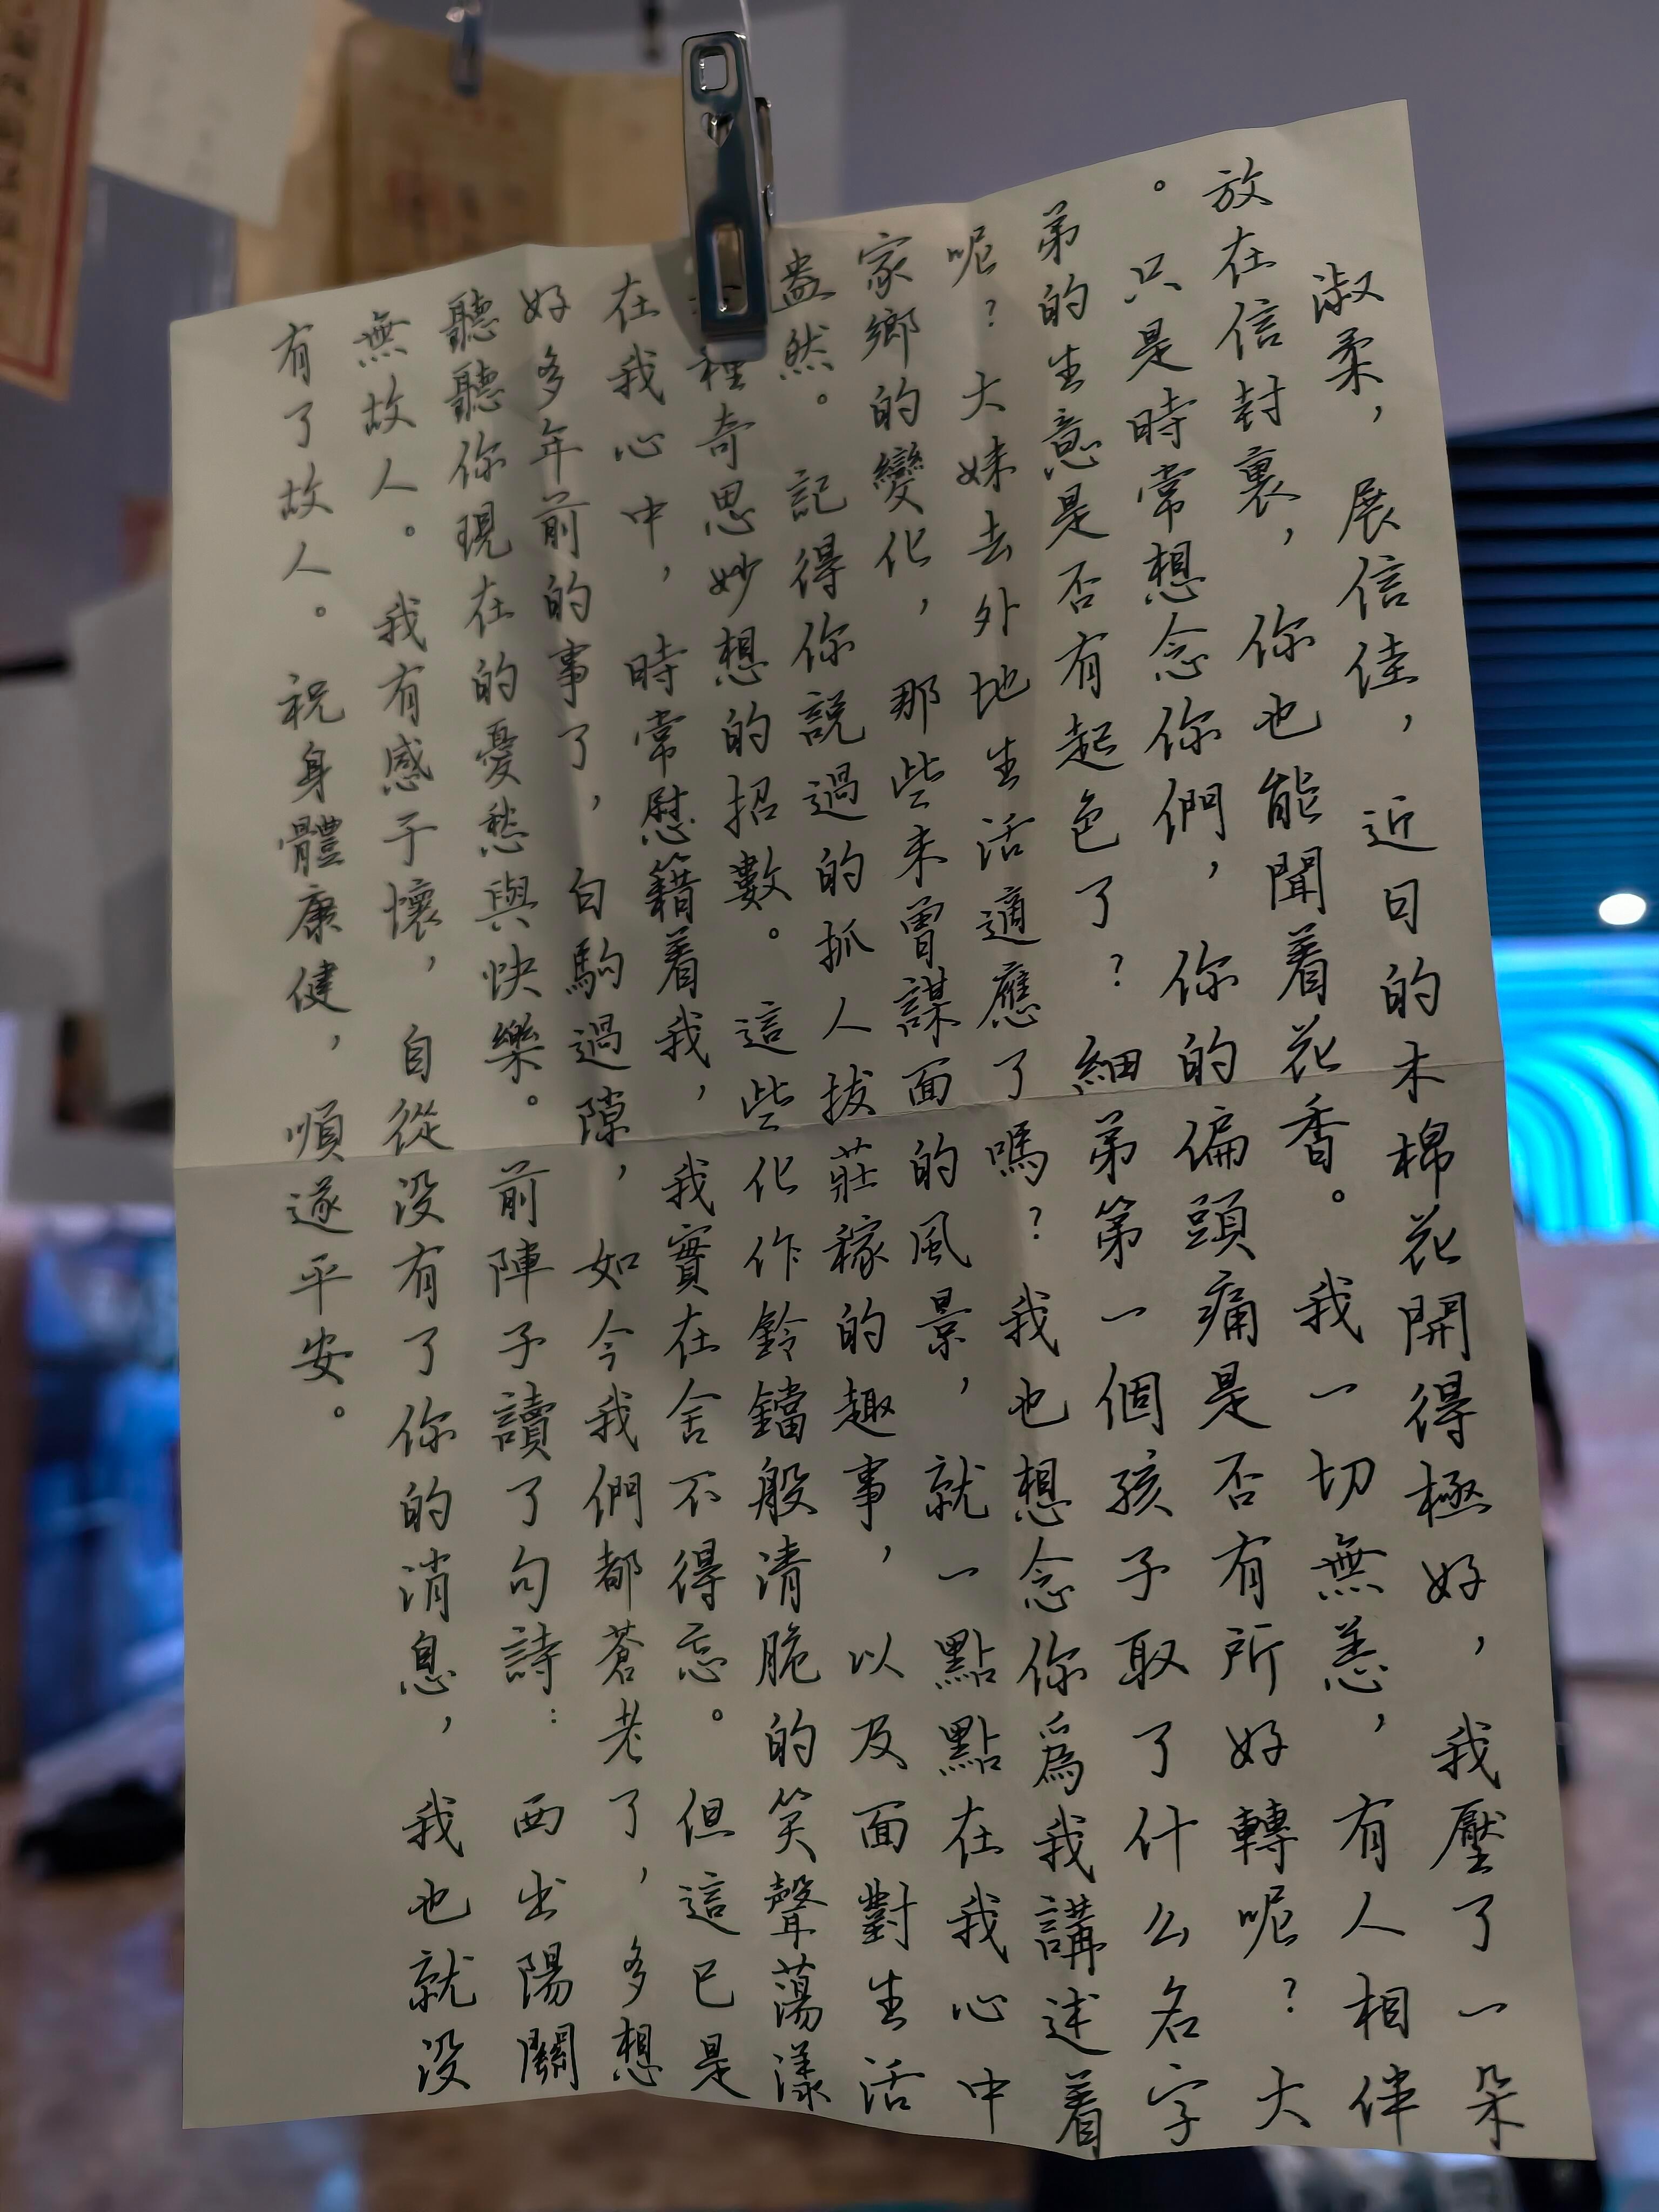 淑柔，展信佳，近日的木棉花開得極好，我壓了一朵
放在信封裏，你也能聞着花香。我一切無恙，有人相伴
。只是時常想念你們，你的偏頭痛是否有所好轉呢？大
弟的生意是否有起色了？細弟第一個孩子取了什么名字
呢？大妹去外地生活適應了嗎？我也想念你爲我講述着
家鄉的變化，那些未曾謀面的風景，就一點點在我心中
盎然。記得你説過的抓人拔莊稼的趣事，以及面對生活
種奇思妙想的招數。這些化作鈴鐺般清脆的笑聲蕩漾
在我心中，時常慰籍着我，我實在舍不得忘。但這已是
好多年前的事了，白駒過隙，如今我們都蒼老了，多想
聽聽你現在的憂愁與快樂。前陣子讀了句詩：西出陽關
無故人。我有感于懷，自從没有了你的消息，我也就没
有了故人。祝身體康健，順遂平安。